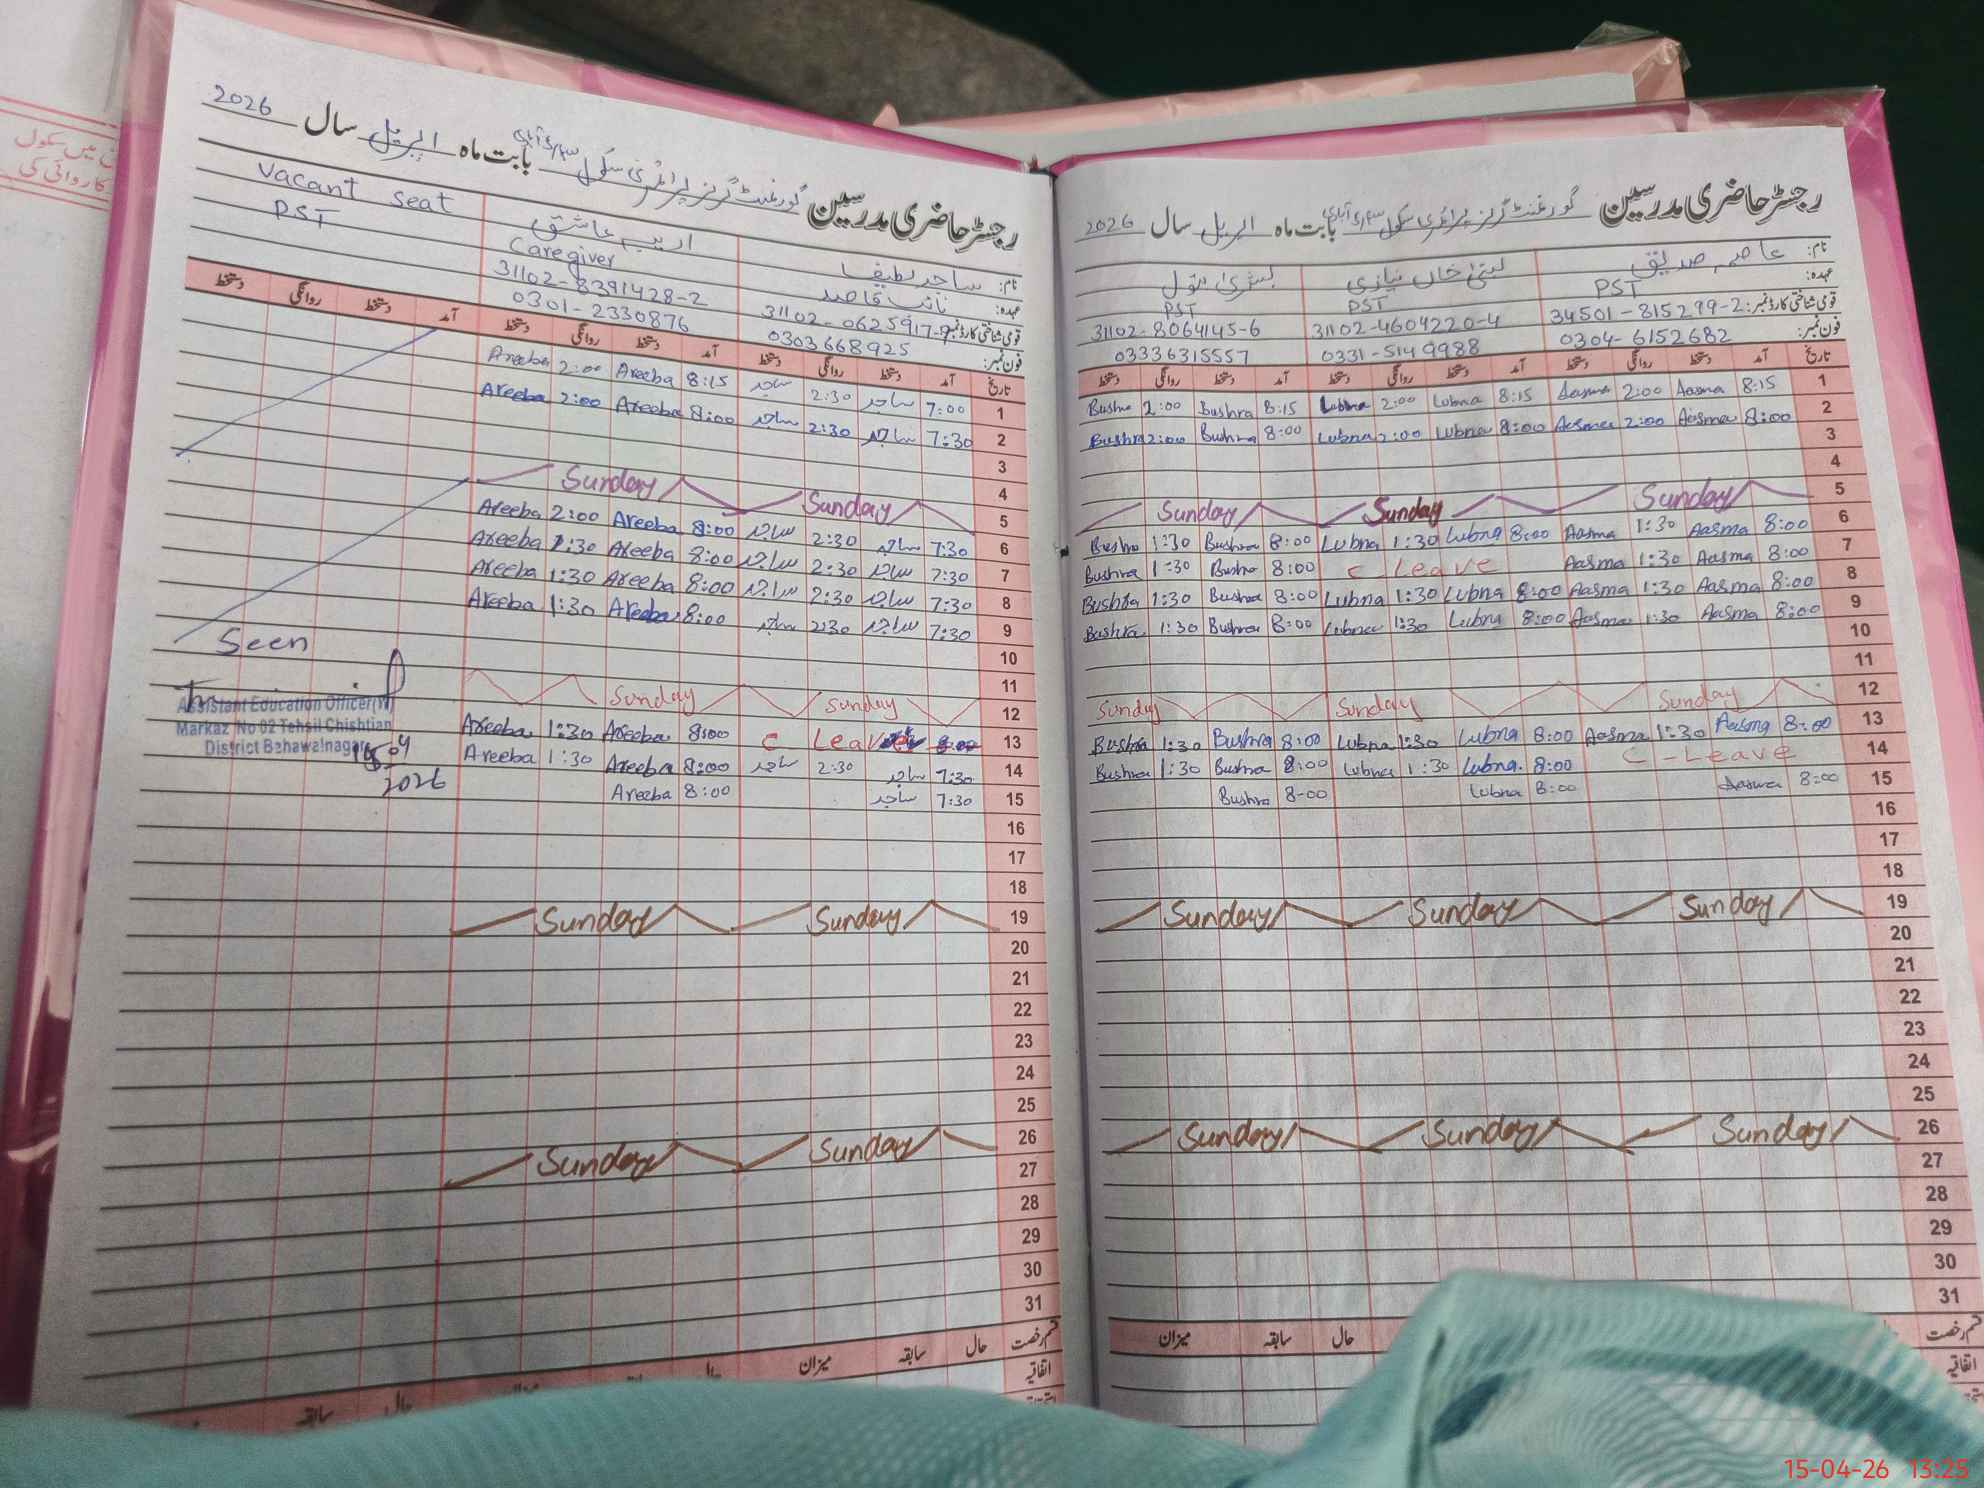 رجسٹر حاضری مدرسین گورنمنٹ گرلز پرائمری سکول بابت ماہ اپریل سال 2026
نام: عاصمہ صدیق لبنیٰ خان نیازی بشریٰ بتول
عہدہ: PST PST PST
قومی شناختی کارڈ نمبر: 34501-815299-2 31102-4604220-4 31102-8064145-6
فون نمبر: 0304-6152682 0331-5149988 03336315557
تاریخ آمد دستخط روانگی دستخط آمد دستخط روانگی دستخط آمد دستخط روانگی دستخط
1 8:15 Aasma 2:00 Aasma 8:15 Lubna 2:00 Lubna 8:15 Bushra 2:00 Bushra
2 8:00 Aasma 2:00 Aasma 8:00 Lubna 2:00 Lubna 8:00 Bushra 2:00 Bushra
3
4
5 Sunday Sunday Sunday
6 8:00 Aasma 1:30 Aasma 8:00 Lubna 1:30 Lubna 8:00 Bushra 1:30 Bushra
7 8:00 Aasma 1:30 Aasma C-Leave 8:00 Bushra 1:30 Bushra
8 8:00 Aasma 1:30 Aasma 8:00 Lubna 1:30 Lubna 8:00 Bushra 1:30 Bushra
9 8:00 Aasma 1:30 Aasma 8:00 Lubna 1:30 Lubna 8:00 Bushra 1:30 Bushra
10
11
12 Sunday Sunday Sunday
13 8:00 Aasma 1:30 Aasma 8:00 Lubna 1:30 Lubna 8:00 Bushra 1:30 Bushra
14 C-Leave 8:00 Lubna 1:30 Lubna 8:00 Bushra 1:30 Bushra
15 8:00 Aasma 8:00 Lubna 8:00 Bushra
16
17
18
19 Sunday Sunday Sunday
20
21
22
23
24
25
26 Sunday Sunday Sunday
27
28
29
30
31
قسم رخصت حال سابقہ میزان
اتفاقیہ
رجسٹر حاضری مدرسین گورنمنٹ گرلز پرائمری سکول بابت ماہ اپریل سال 2026
نام: ساجد لطیف اریبہ عاشق Vacant seat
عہدہ: نائب قاصد Caregiver PST
قومی شناختی کارڈ نمبر: 31102-0625917-9 31102-8391428-2
فون نمبر: 0303668925 0301-2330876
تاریخ آمد دستخط روانگی دستخط آمد دستخط روانگی دستخط آمد دستخط روانگی دستخط
1 7:00 ساجد 2:30 ساجد 8:15 Areeba 2:00 Areeba
2 7:30 ساجد 2:30 ساجد 8:00 Areeba 2:00 Areeba
3
4
5 Sunday Sunday
6 7:30 ساجد 2:30 ساجد 8:00 Areeba 2:00 Areeba
7 7:30 ساجد 2:30 ساجد 8:00 Areeba 1:30 Areeba
8 7:30 ساجد 2:30 ساجد 8:00 Areeba 1:30 Areeba
9 7:30 ساجد 2:30 ساجد 8:00 Areeba 1:30 Areeba
10
11
12 Sunday Sunday
13 C Leave 8:00 Areeba 1:30 Areeba
14 7:30 ساجد 2:30 ساجد 8:00 Areeba 1:30 Areeba
15 7:30 ساجد 8:00 Areeba
16
17
18
19 Sunday Sunday
20
21
22
23
24
25
26 Sunday Sunday
27
28
29
30
31
قسم رخصت حال سابقہ میزان حال سابقہ
اتفاقیہ
Seen
Assistant Education Officer(W)
Markaz No 02 Tehsil Chishtian
District Bahawalnagar
15-04
2026
میں سکول
کاروائی کی
15-04-26 13:25